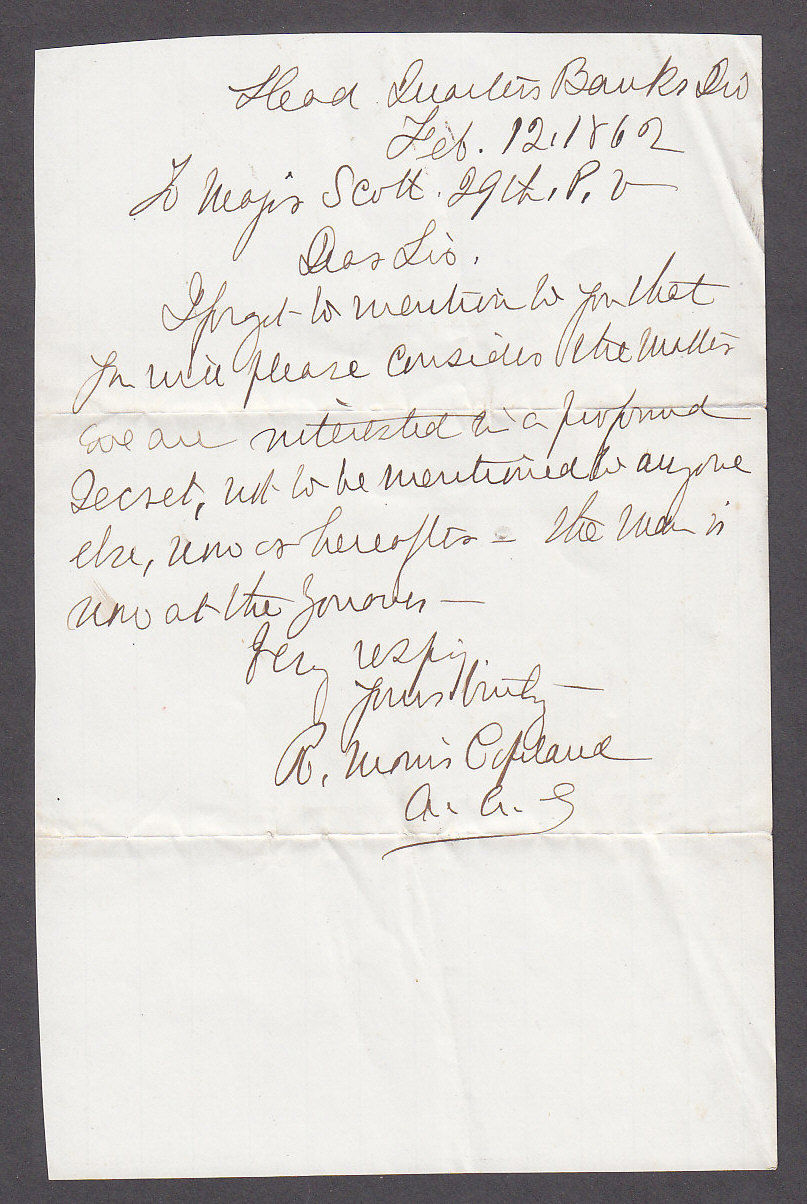 Head Quarters Banks Div
Feb. 12, 1862
To Major Scott. 29th. P. V
Dear Sir.
I forgot to mention to you that
you will please consider the matter
we are interested in a profound
Secret, not to be mentioned to anyone
else, now or hereafter - the man is
now at the
Very respy
Yours truly -
R. Morris Copeland
A. A. G